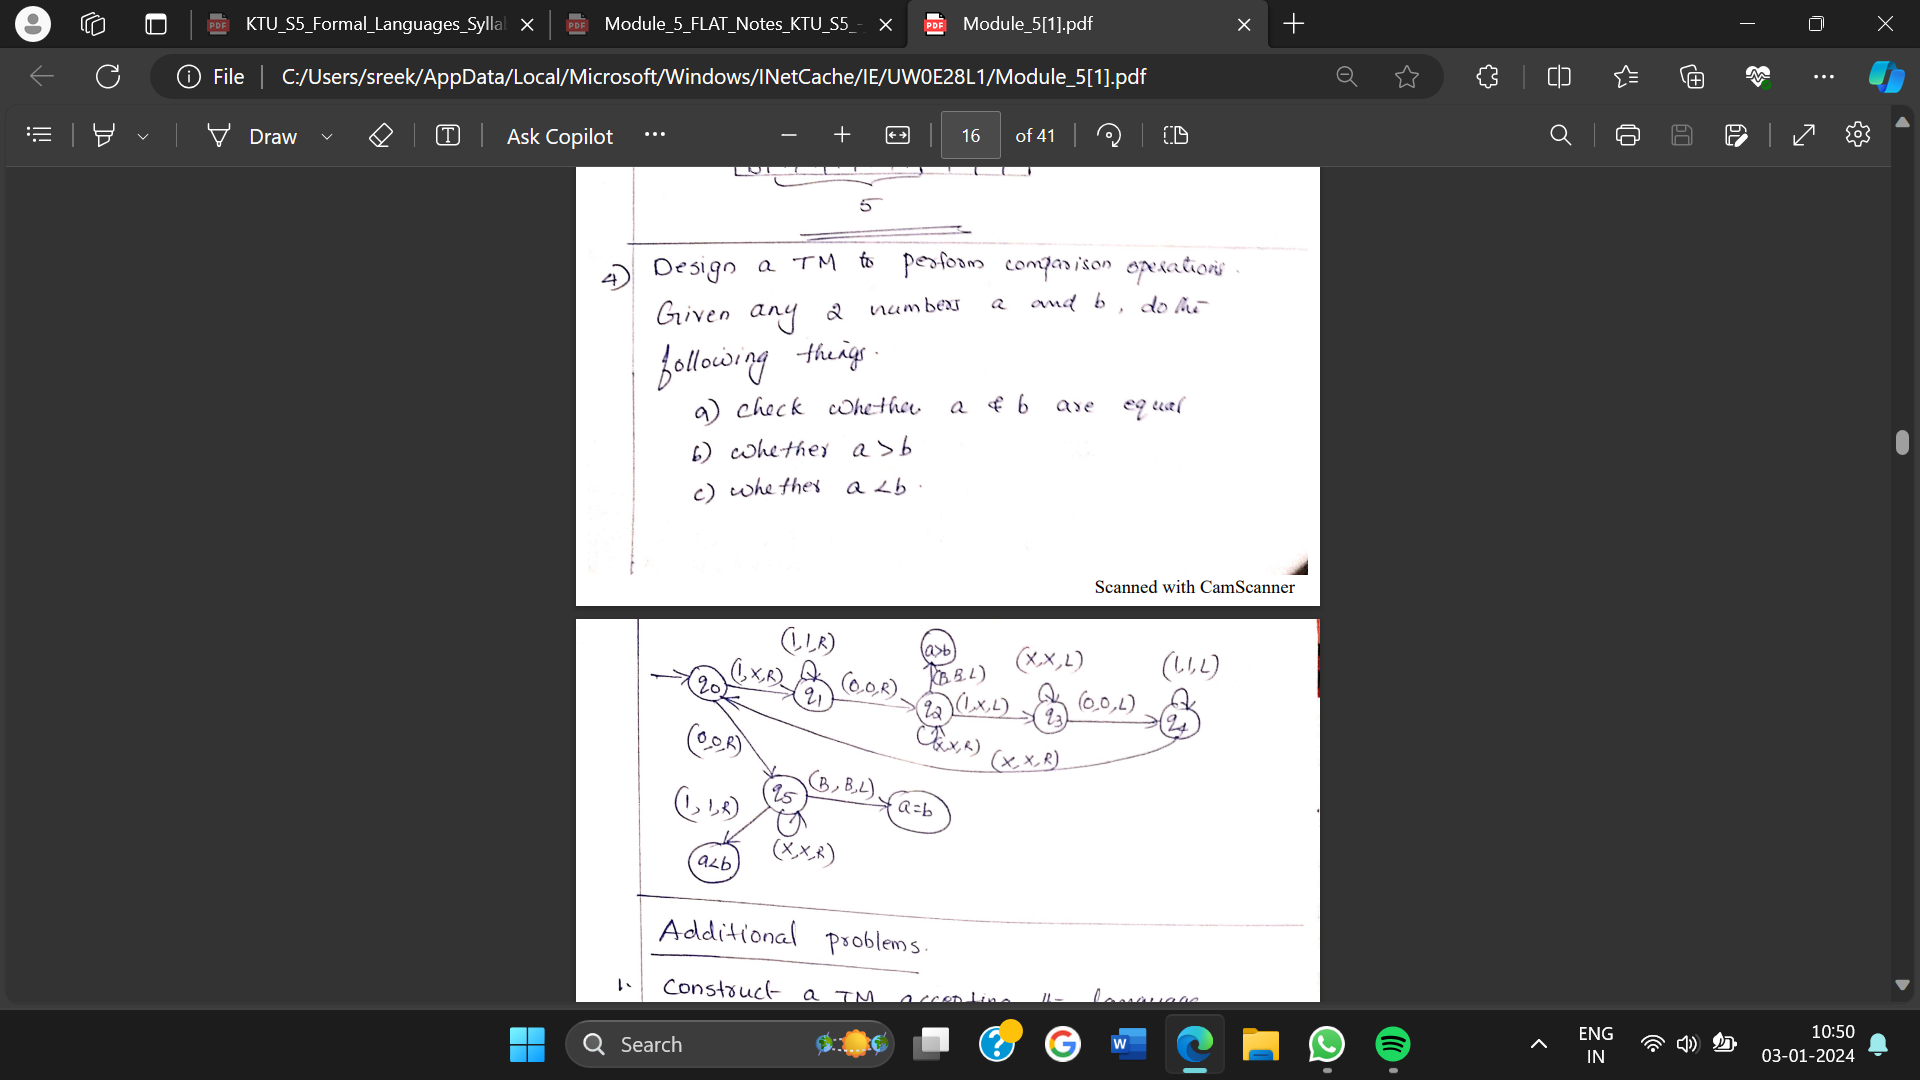 KTU_S5_Formal_Languages_Sylla
Module_5_FLAT_Notes_KTU_S5_-
Module_5[1].pdf
File
C:/Users/sreek/AppData/Local/Microsoft/Windows/INetCache/IE/UW0E28L1/Module_5[1].pdf
Draw
Ask Copilot
16 of 41
5
4) Design a TM to perform comparison operations.
Given any 2 numbers a and b, do the
following things.
a) check whether a & b are equal
b) whether a>b
c) whether a<b.
Scanned with CamScanner
(1,1,R)
a>b
(X,X,L)
(1,1,L)
(B,B,L)
q0 (1,X,R) q1 (0,0,R) q2 (1,X,L) q3 (0,0,L) q4
(X,X,R)
(X,X,R)
(0,0,R)
q5 (B,B,L) a=b
(1,1,R)
(X,X,R)
a<b
Additional problems.
1. Construct a TM accepting the language
Search
ENG
IN
10:50
03-01-2024